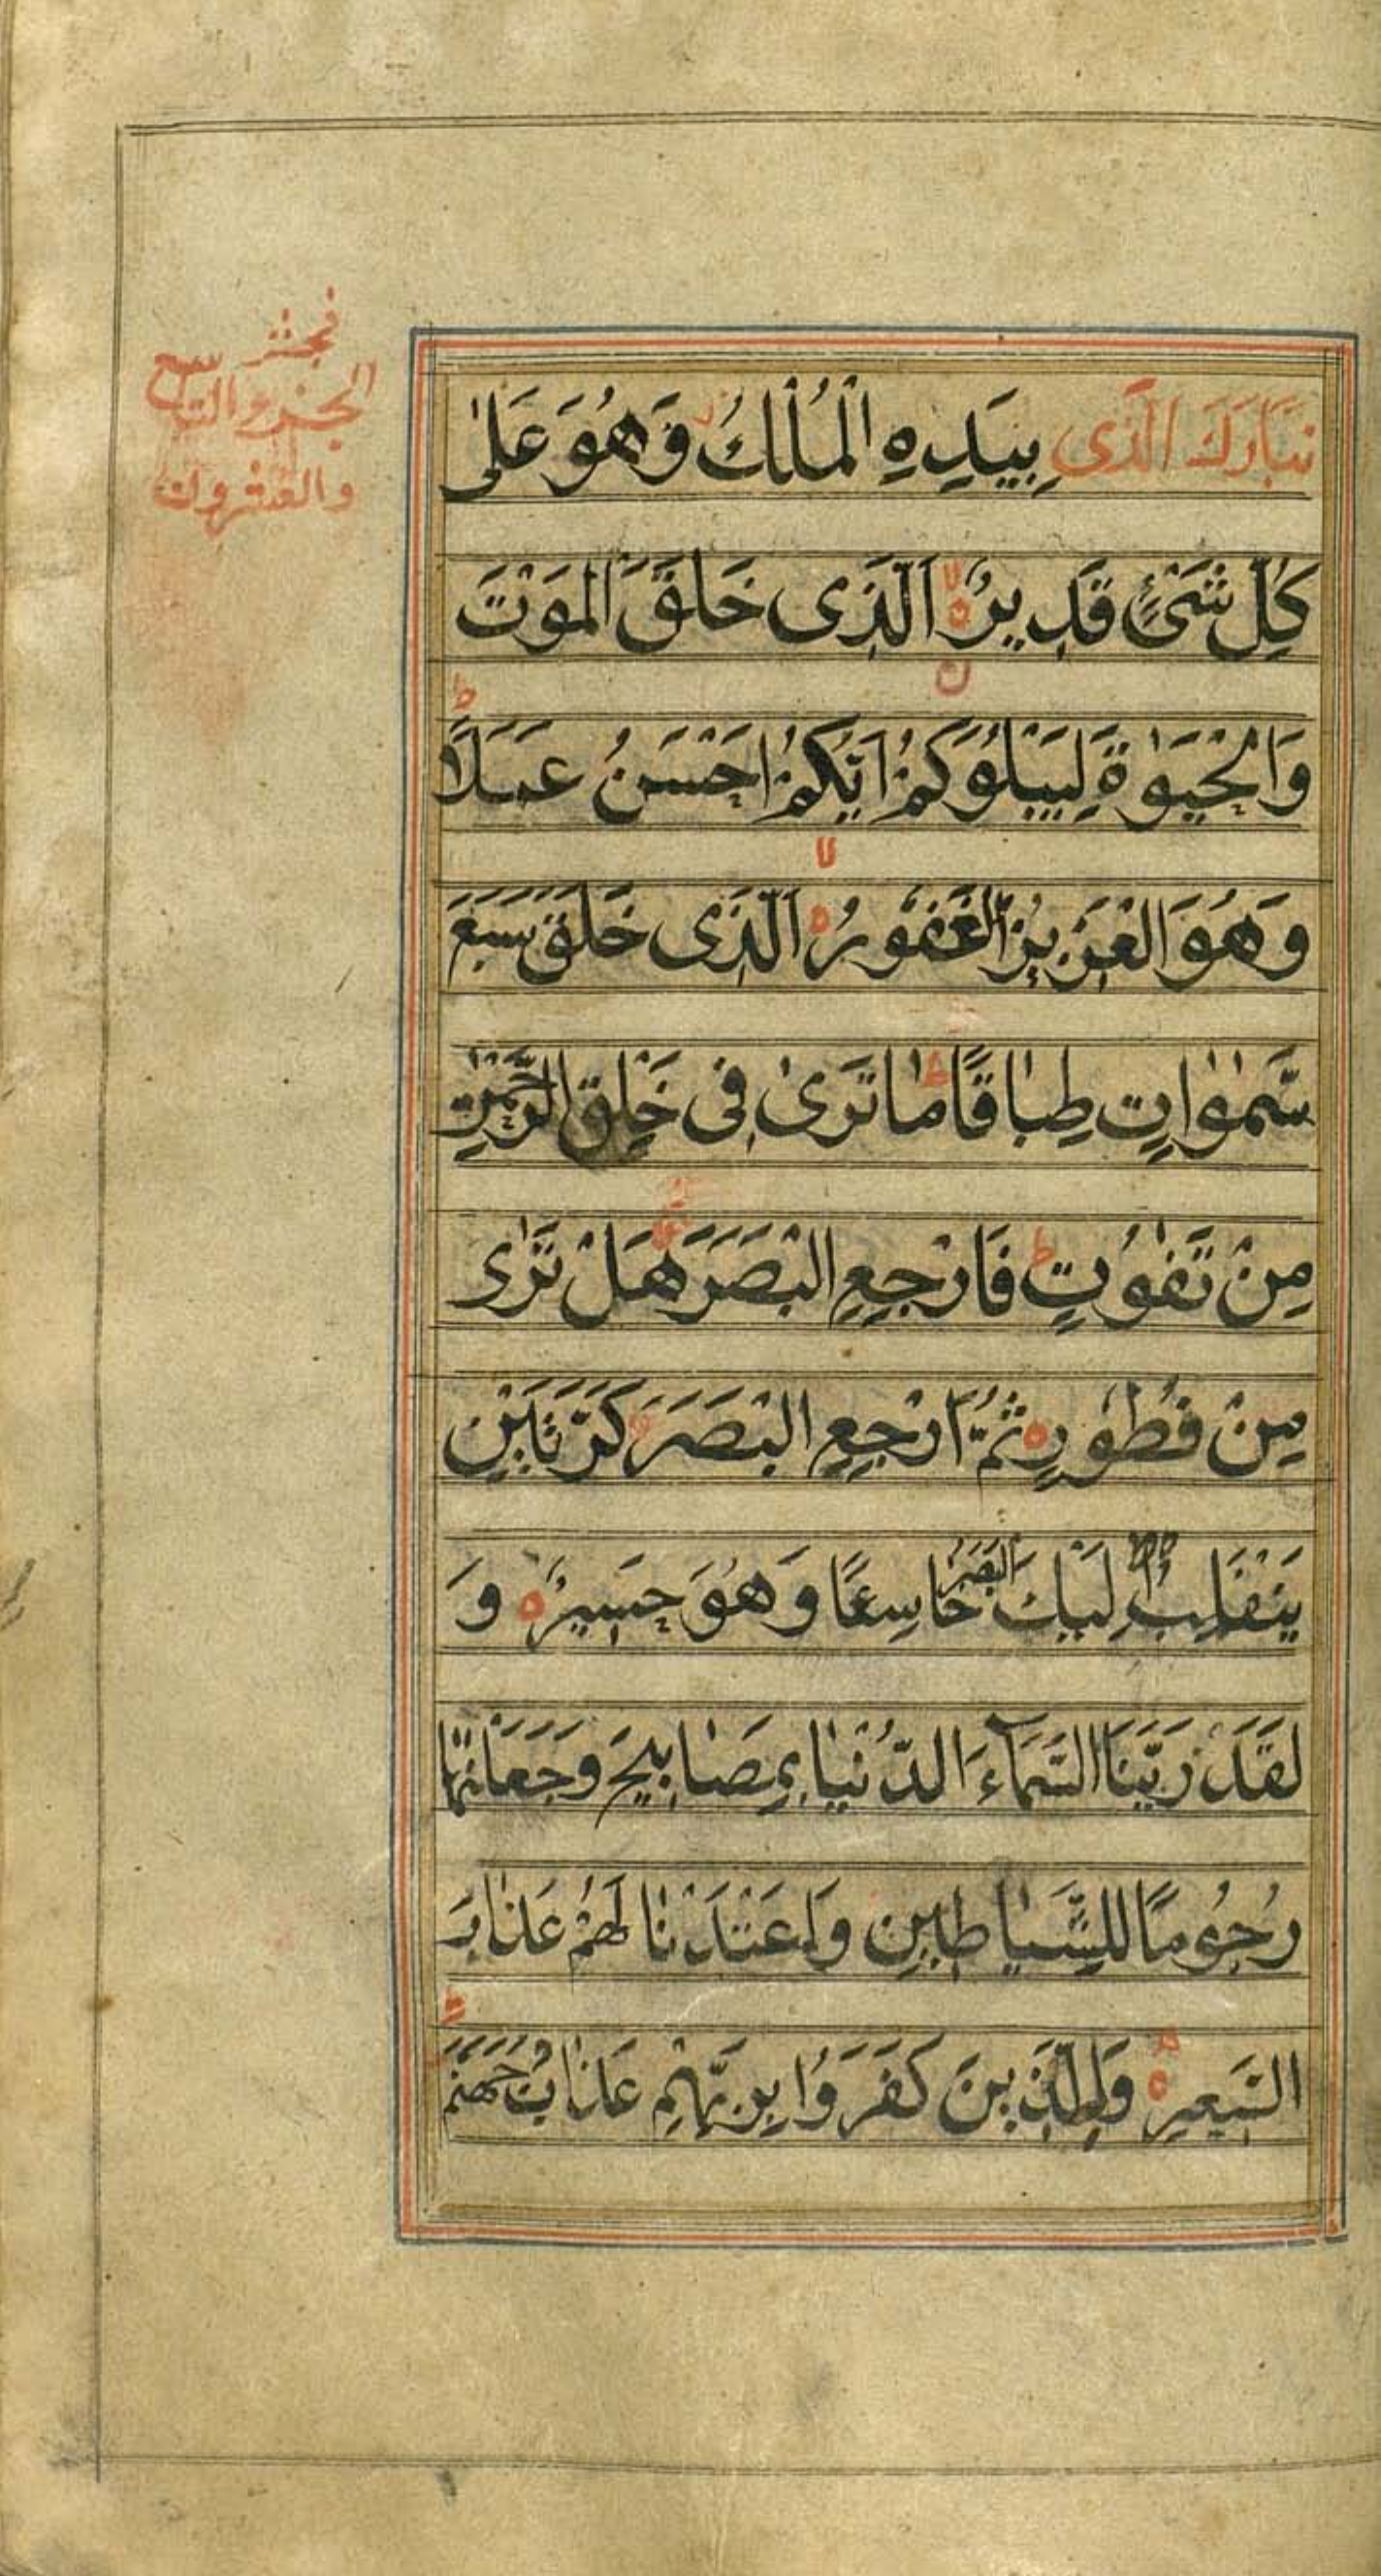 تَبَارَكَ الَّذِی بِیَدِهِ الْمُلْكُ وَهُوَ عَلٰی
كُلِّ شَیْءٍ قَدِیرُ ه الَّذَی خَلَقَ الْمَوْتَ
وَالْحَیَوٰةَ لِیَبْلُوَكُمْ اَیُّكُمْ اَحْسَنُ عَمَلًا ط
وَهُوَ الْعَزِیزُ الْغَفُورُ ه لا الَّذِی خَلَقَ سَبْعَ
سَمٰوٰاتٍ طِبٰاقًا ط مٰا تَرٰی فِی خَلْقِ الرَّحْمٰنِ
مِنْ تَفٰوُتٍ ط فَارْجِعِ الْبَصَرَ هَلْ تَرٰی
مِنْ فُطُورٍ ه ثُمَّ ارْجِعِ الْبَصَرَ كَرَّتَیْنِ
یَنْقَلِبْ اِلَیْكَ الْبَصَرُ خٰاسِعًا وَهُوَ حَسِیرُ ه وَ
لَقَدْ زَیَّنَّا السَّمَآءَ الدُّنْیٰا بِمَصٰابِیحَ وَجَعَلْنٰهٰا
رُجُومًا لِلشَّیٰاطِینِ وَاَعْتَدْنٰا لَهُمْ عَذٰابَ
السَّعِیرِ ه وَلِلَّذِینَ كَفَرُوا بِرَبِّهِمْ عَذٰابُ جَهَنَّمَ
الجزو التاسع
والعشرون